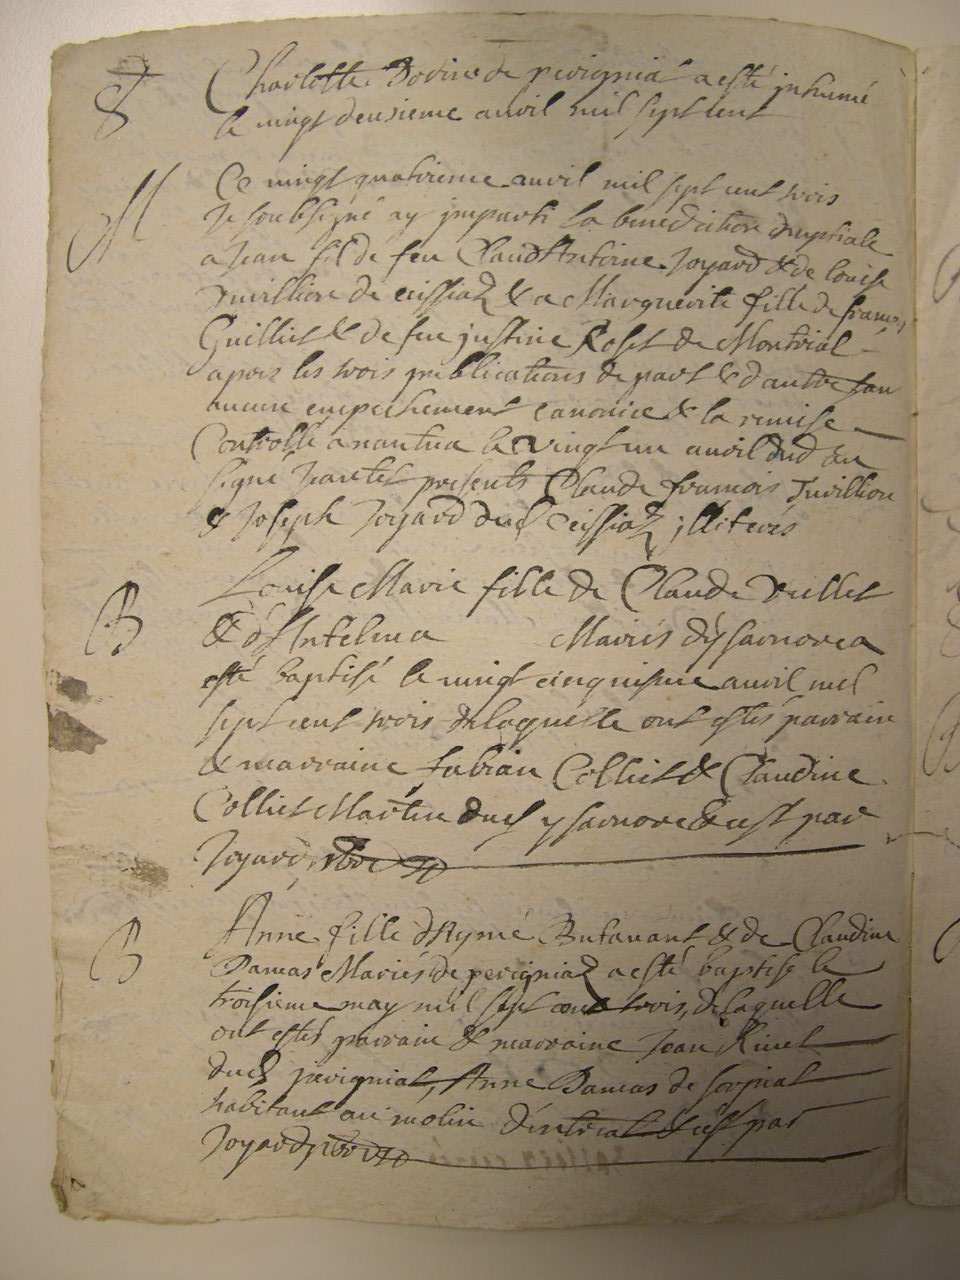 S Charlotte Bodine de perignia a esté inhumé
le vingt deusieme auril mil sept cent
M Ce vingt quatrieme auril mil sept cent trois
Je soubsigné ay imparti la benediction nuptiale
a Jean fil de feu Claud Antoine Joyard & de louise
Juillion de ceissiaz & a Marguerite fille de francois
Guilliet & de feu justine Roset de Montreal
apres les trois publications de part & d'autre san
aucun empechement canonice & la remise
Controlle a nantua le vingt un auril dud an
signe presents Claude francois Juillion
& Joseph Joyard dud Ceissiaz illiterés
B Louise Marie fille de Claude Vuillet
& d'Antelma Mariés d'ysarnore a
esté baptisé le vingt cinquiesme auril mil
sept cent trois de laquelle ont estés parrain
& marraine fabian Colliet & Claudine
Colliet Martin dud ysarnore & c'est par
Joyard
B Anne fille d'Aymé Butauant & de Claudine
Damas Mariés de perigniaz a esté baptisé le
troisieme may mil sept cent trois, de laquelle
ont estés parrain & marraine Jean Rinet
dud perigniat, Anne Damas de
habitant au molin d'intriat & c'est par
Joyard